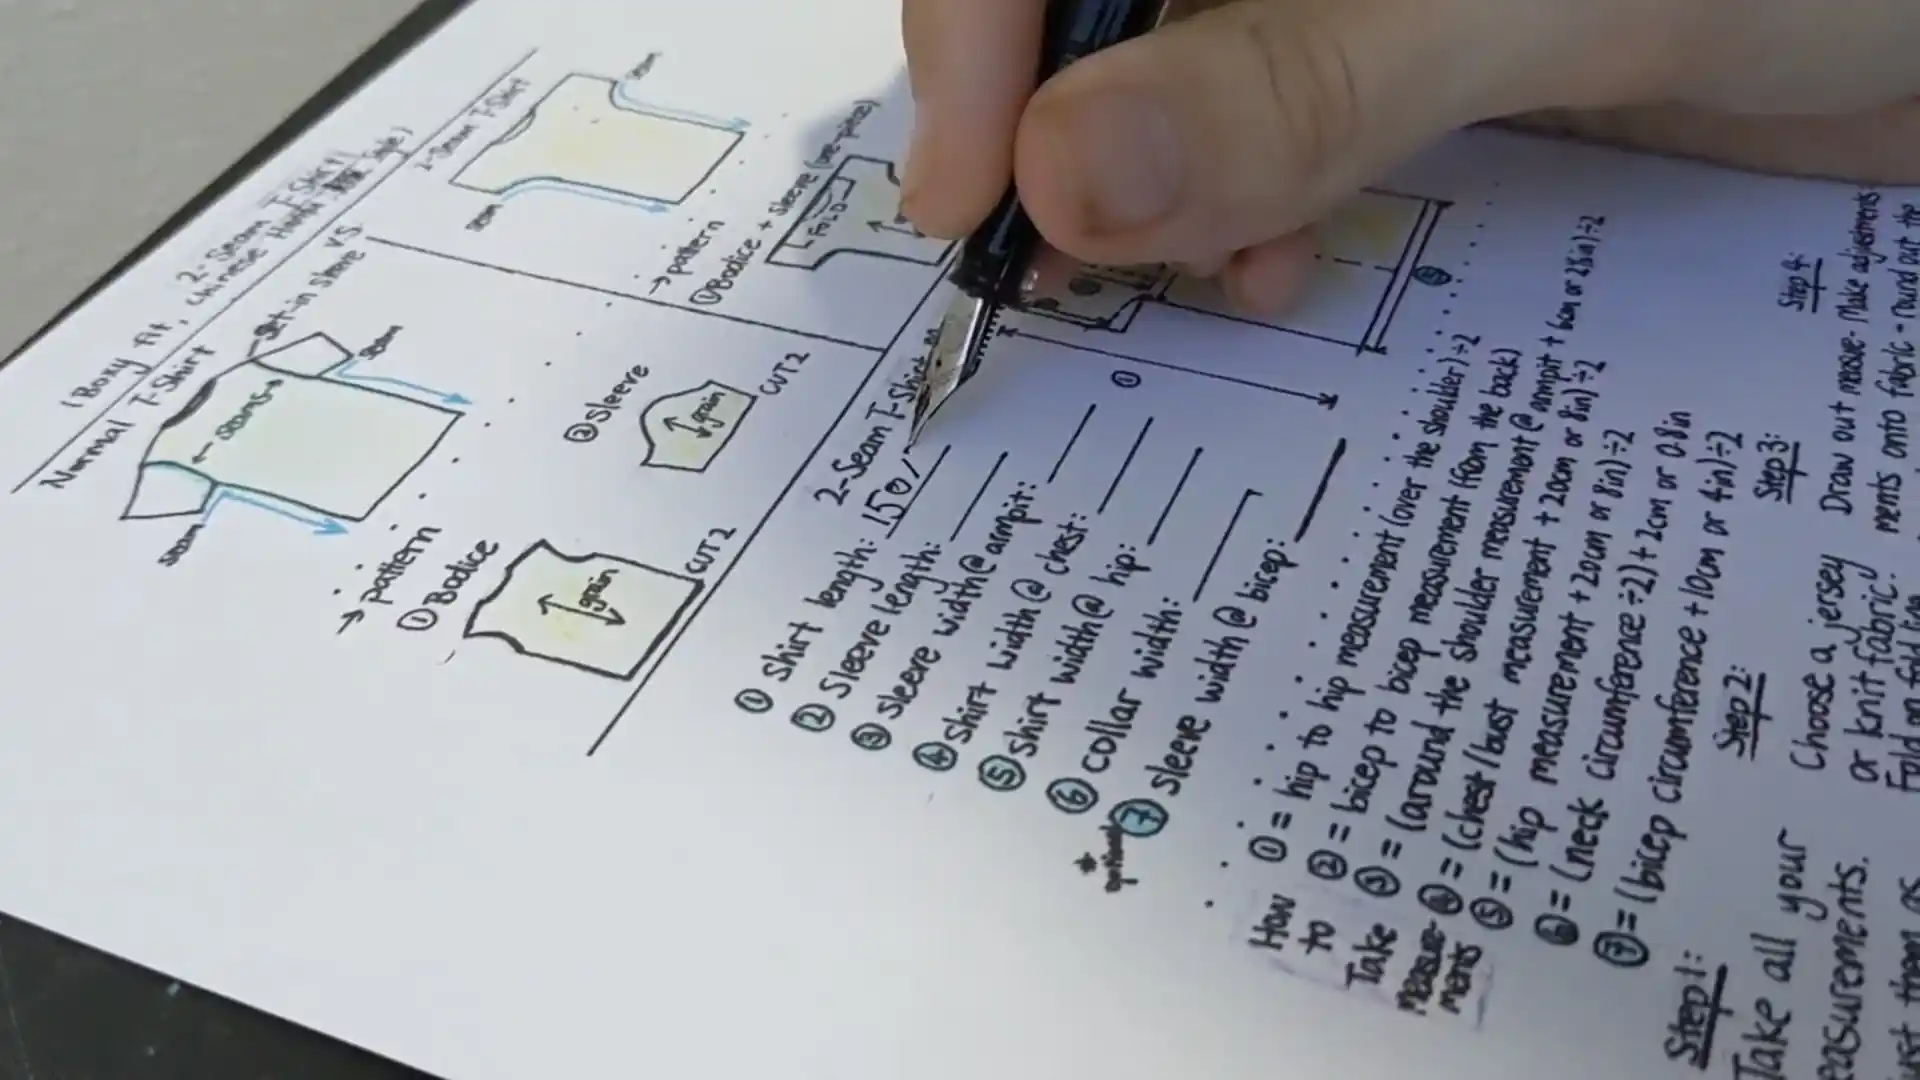 2-Seam T-Shirt
(Boxy fit, Chinese Hanfu Style)
Normal T-Shirt
VS
2-Seam T-Shirt
set-in sleeve
seam
seams
seam
seam
seam
→ pattern
① Bodice
grain
CUT 2
② sleeve
grain
CUT 2
→ pattern
① Bodice + sleeve (one-piece)
FOLD
2-Seam T-Shirt
① shirt length: 150/
② sleeve length:
③ sleeve width @ armpit:
④ shirt width @ chest:
⑤ shirt width @ hip:
⑥ collar width:
⑦ sleeve width @ bicep:
* optional
①
⑤
How to Take Measure-ments
① = hip to hip measurement (over the shoulder) ÷2
② = bicep to bicep measurement (from the back)
③ = (around the shoulder measurement @ armpit + 6cm or 2.5in) ÷2
④ = (chest/bust measurement + 20cm or 8in) ÷2
⑤ = (hip measurement + 20cm or 8in) ÷2
⑥ = (neck circumference ÷2) + 2cm or 0.8in
⑦ = (bicep circumference + 10cm or 4in) ÷2
Step 1:
Take all your
easurements.
ust them as
Step 2:
Choose a jersey
or knit fabric.
Fold on fold line
Step 3:
Draw out measure-
ments onto fabric
Step 4:
Make adjustments
- round out the